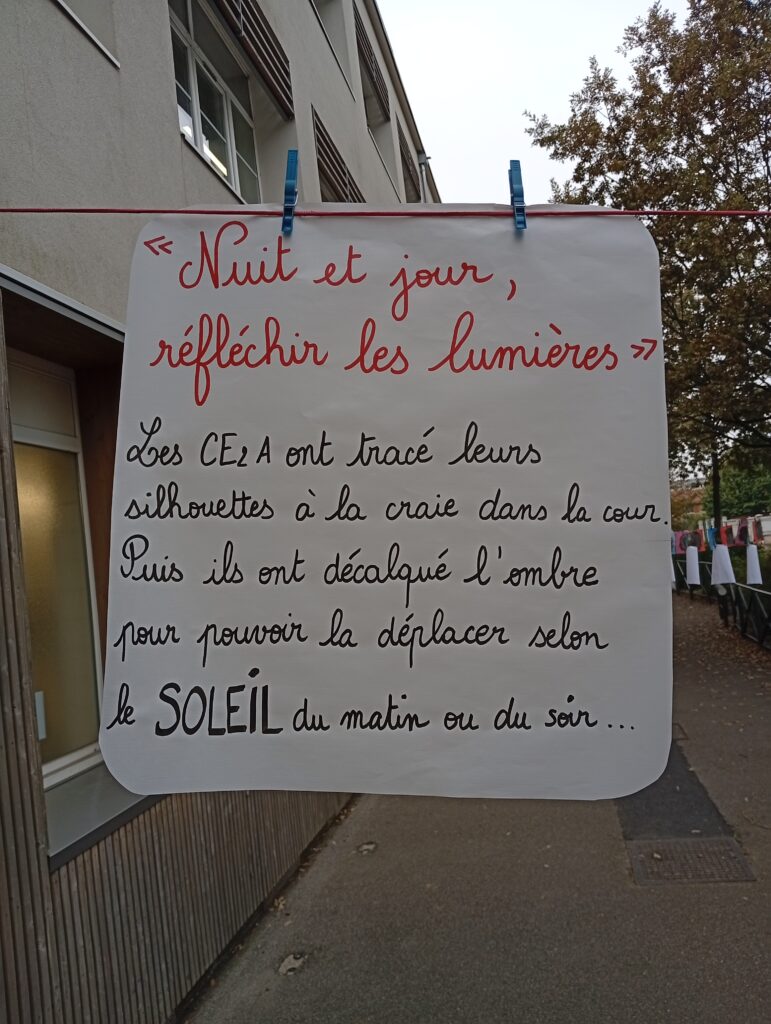 « Nuit et jour,
réfléchir les lumières »
Les CE2 A ont tracé leurs
silhouettes à la craie dans la cour.
Puis ils ont décalqué l'ombre
pour pouvoir la déplacer selon
le SOLEIL du matin ou du soir...